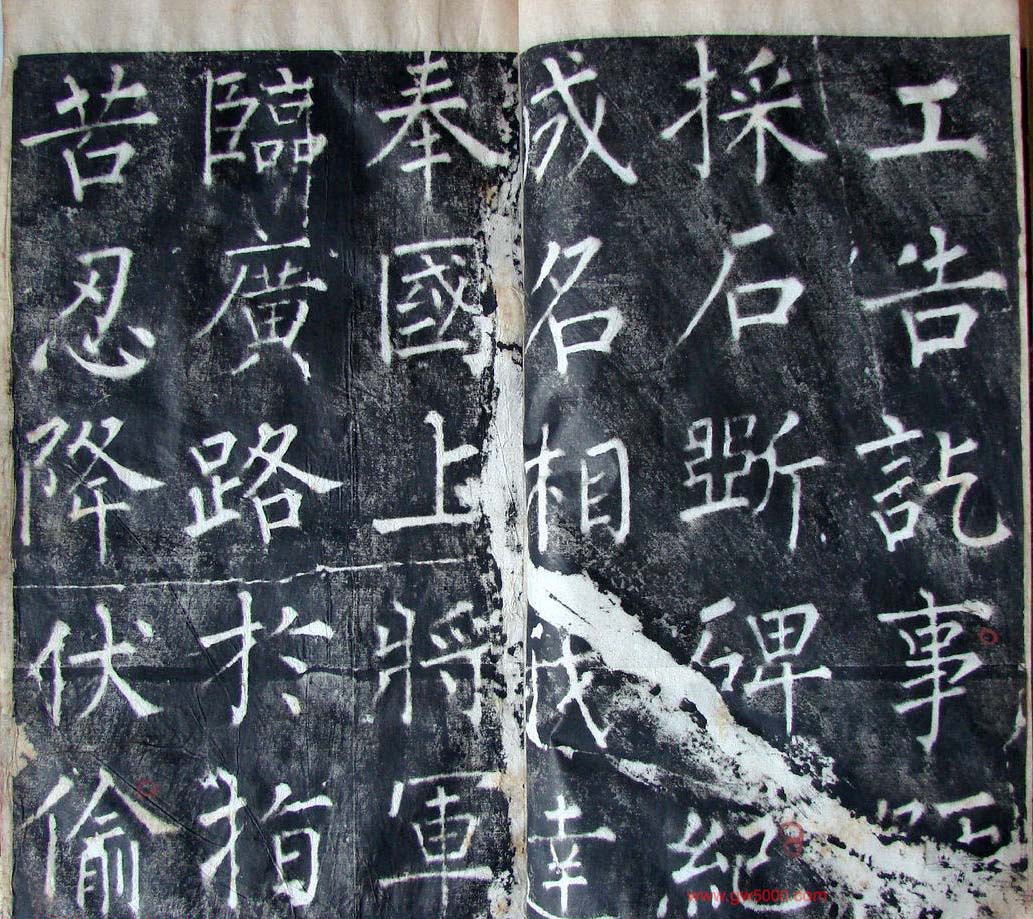 工告訖事
採石斲碑紀
成名相幸
奉國上將軍
臨廣路於
苦忍降伏偷
www.gw5000.com